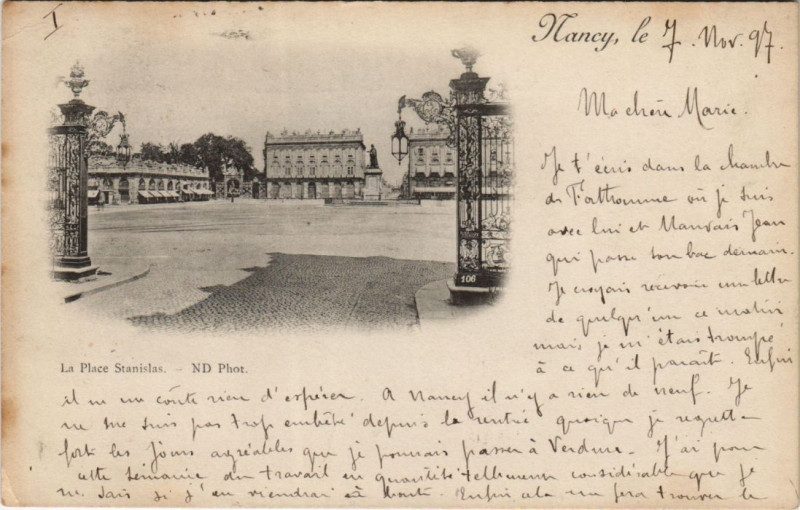 I
Nancy, le 7. Nov. 97.
Ma chère Marie.
Je t'écris dans la chambre
de Fathomme où je suis
avec lui et Mauvais Jean
qui passe son bac demain.
Je croyais recevoir une lettre
de quelqu'un ce matin
mais je m'étais trompé
à ce qu'il paraît. Enfin
106
La Place Stanislas. - ND Phot.
il ne me coûte rien d'espérer. A Nancy il n'y a rien de neuf. Je
ne me suis pas trop embêté depuis la rentrée quoique je regrette
fort les jours agréables que je pouvais passer à Verdun. J'ai pour
cette semaine du travail en quantité tellement considérable que je
ne sais si j'en viendrai à bout. Enfin cela me fera trouver le